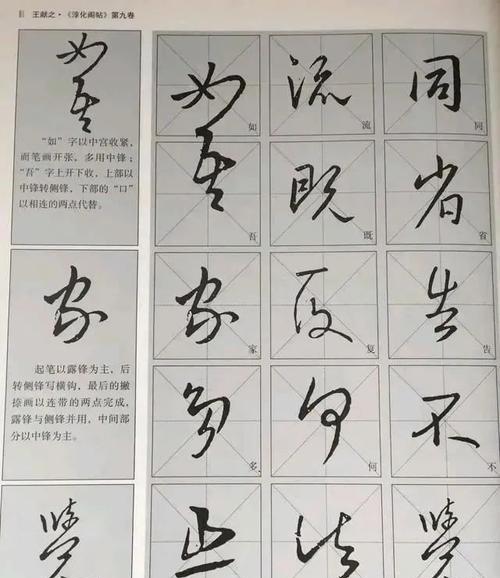 王献之·《淳化阁帖》第九卷
如吾
“如”字以中宫收紧,
而笔画开张,多用中锋;
“吾”字上开下收,上部以
中锋转侧锋,下部的“口”
以相连的两点代替。
家
起笔以露锋为主,后
转侧锋写横钩,最后的撇
捺画以连带的两点完成,
露锋与侧锋并用,中间部
分以中锋为主。
如 流 同
如 流 同
吾 既 省
吾 既 省
家 复 告
家 复 告
多 何 不
多 何 不